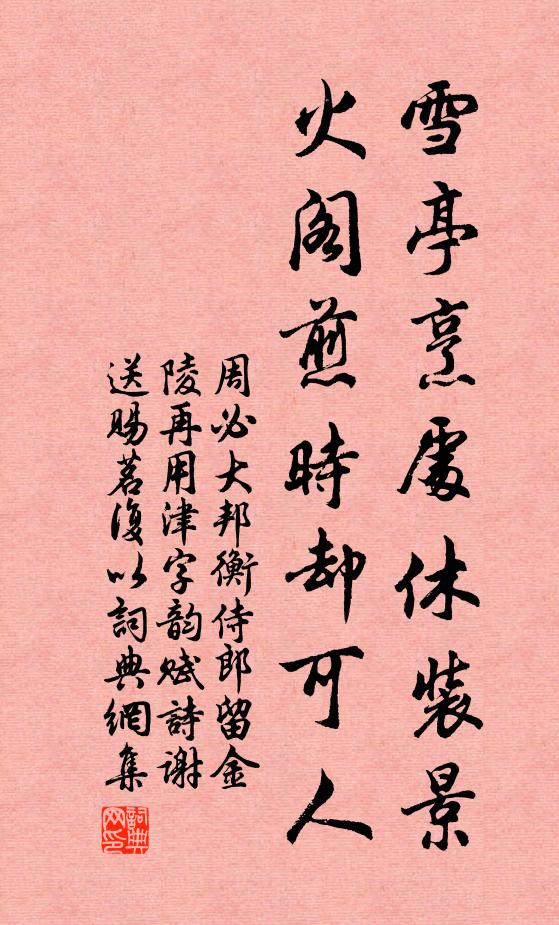 雪亭烹處休裝景
火阁煎時却可人
周必大邦衡侍郎留金
陵再用津字韵賦詩谢
送赐茗復以詞典網集
詞典网印